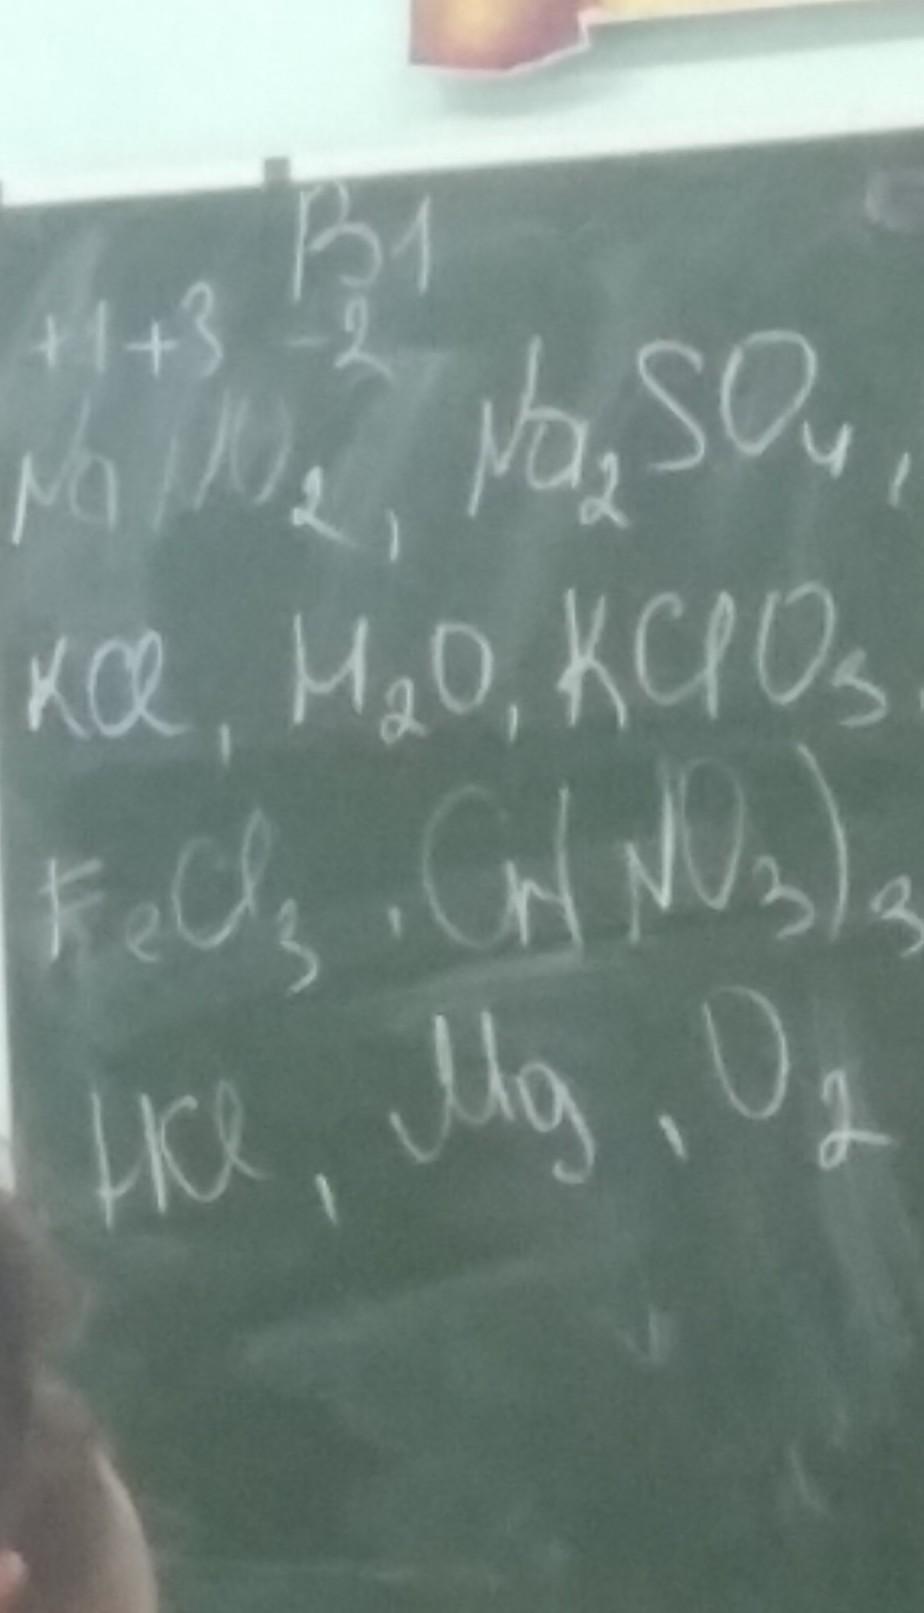 В1
+1 +3 -2
NaNO₂, Na₂SO₄,
KCl, H₂O, KClO₃,
FeCl₃, Cr(NO₃)₃
HCl, Mg, O₂